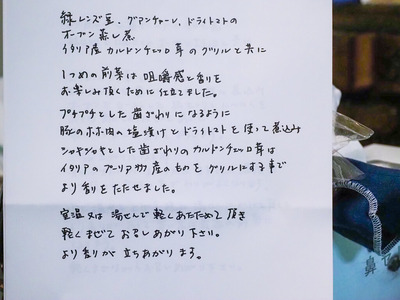 緑レンズ豆、グアンチャーレ、ドライトマトの
オーブン蒸し煮
イタリア産カルドンチェッロ茸のグリルと共に
1つめの前菜は咀嚼感と香りを
お楽しみ頂くために仕立てました。
プチプチとした歯ざわりになるように
豚のホホ肉の塩漬けとドライトマトを使って煮込み
シャキシャキとした歯ざわりのカルドンチェッロ茸は
イタリアのプーリア州産のものをグリルにする事で
より香りをたたせました。
室温又は湯せんで軽くあたためて頂き
軽くまぜてお召しあがり下さい。
より香りが立ちあがります。
鼻